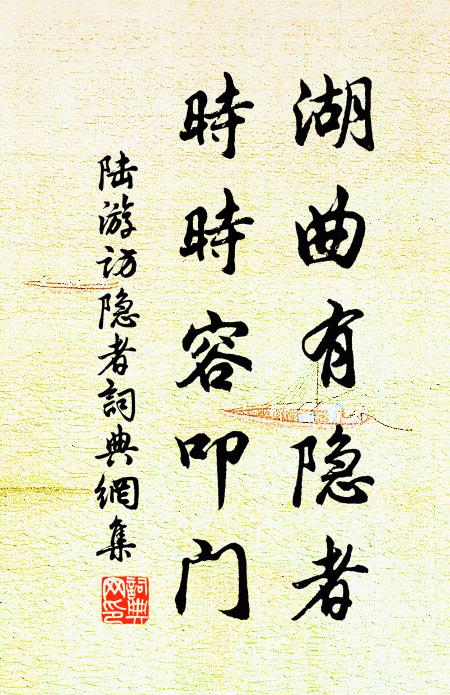 湖曲有隐者
時時容叩门
陆游访隐者詞典網集
詞典网印